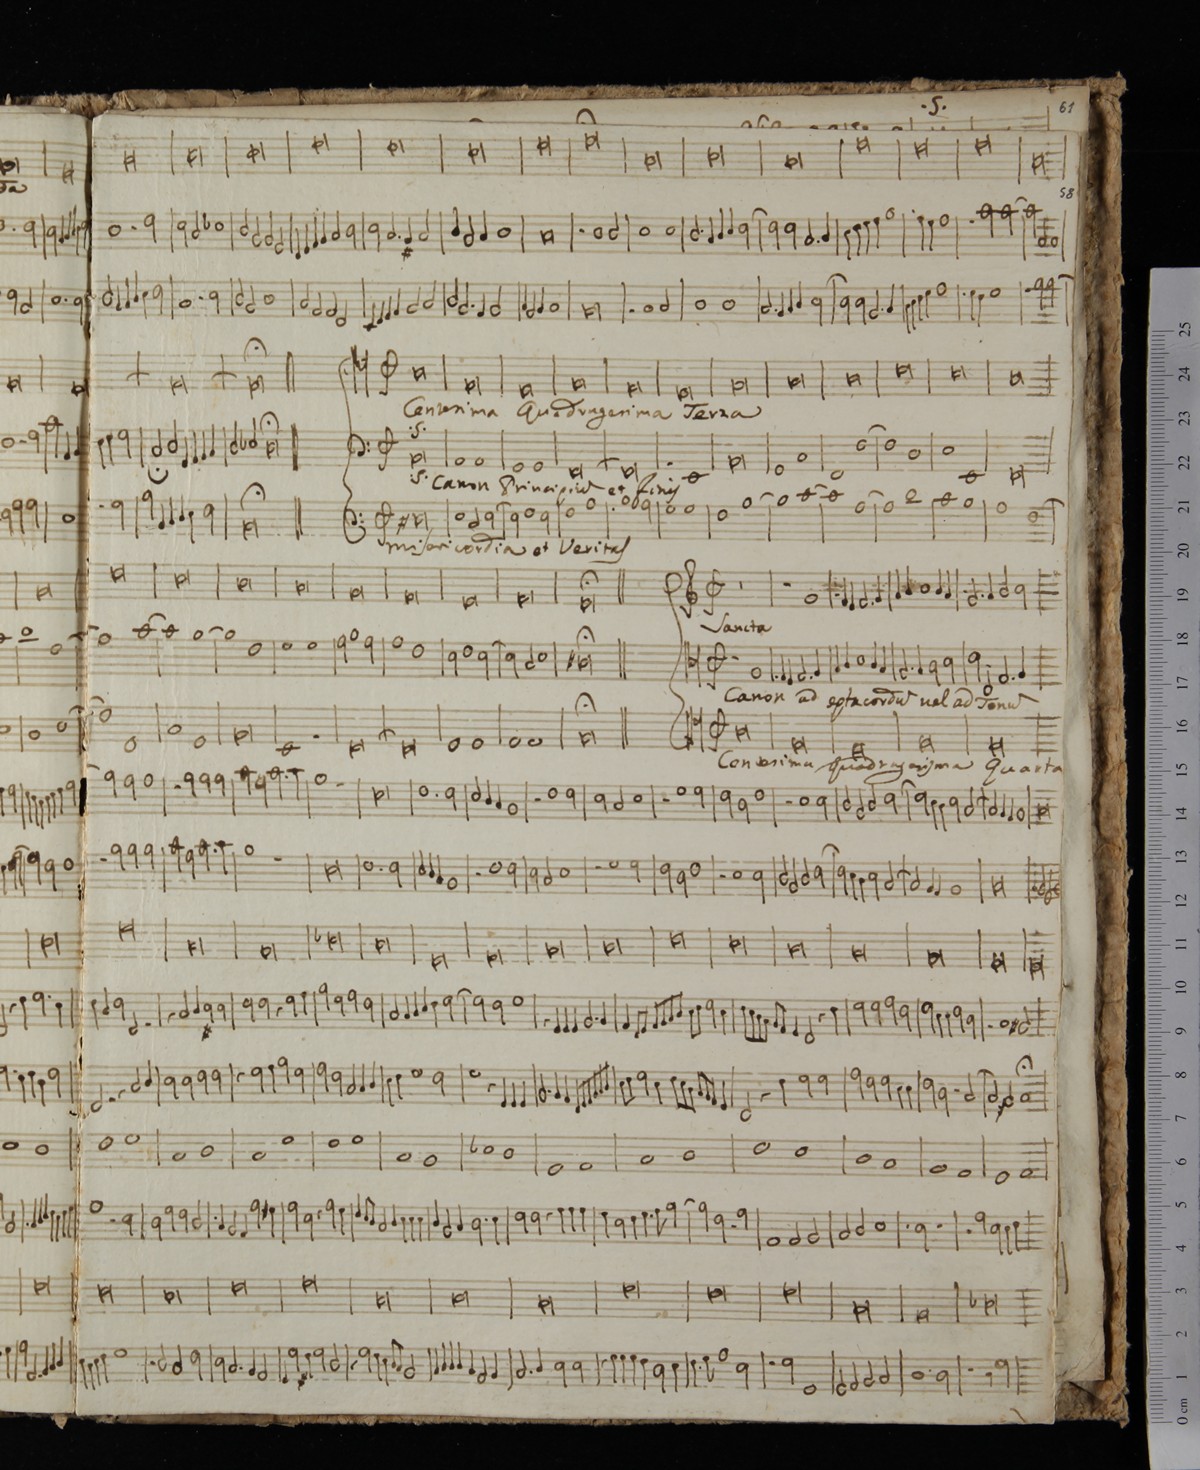 .S.
61
58
Centesima Quadragesima Terza
.S.
S. Canon Principiũ et finis
misericordia et Veritas
Sancta
Canon ad eptacordũ uel ad Tonũ
Centesima quadragesima Quarta
25
24
23
22
21
20
19
18
17
16
15
14
13
12
11
10
9
8
7
6
5
4
3
2
1
0 cm